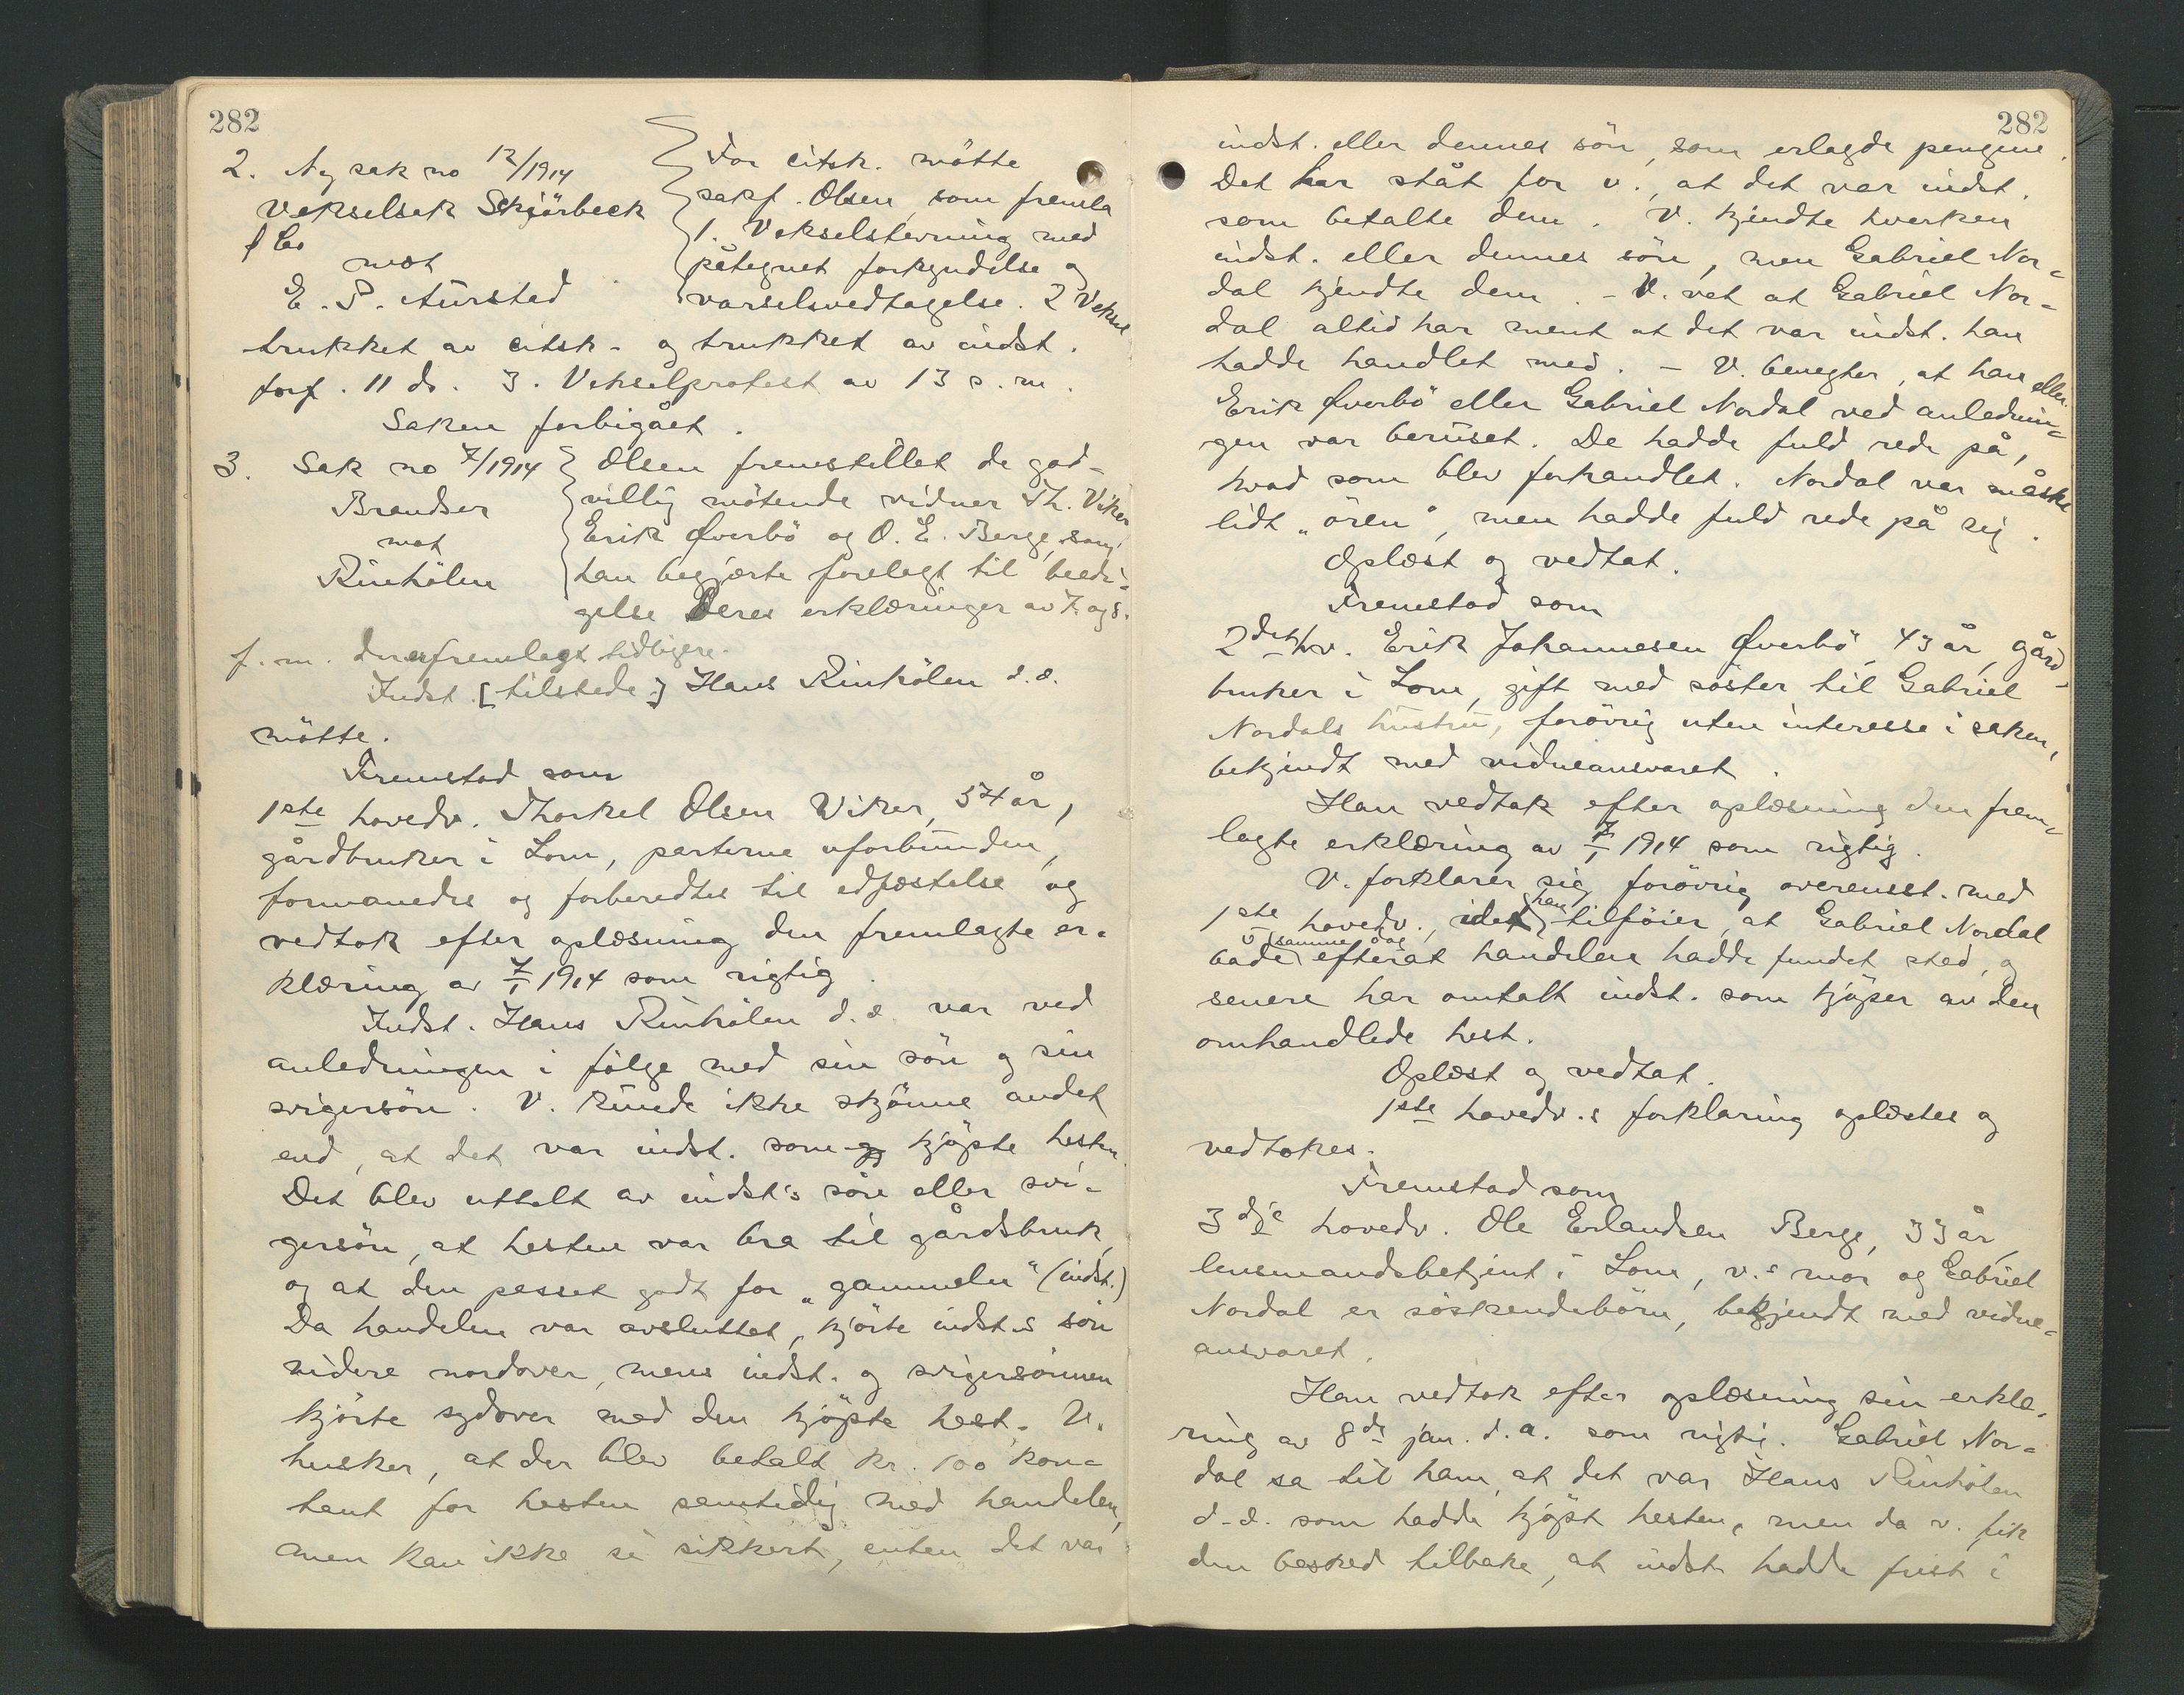 282
2. Ny sak no 12/1914
Vekselsak Skjörbeck
& Co
mot
E. P. Aurstad
For citsk. mötte
sakf. Olsen, som fremla
1. Vekselstevning med
påtegnet forkyndelse og
varselsvedtagelse. 2 Veksel
trukket av citsk. og trukket av indst.
forf. 11 ds. 3. Vekselprotest av 13 s. m.
Saken forbigået.
3. Sak no 7/1914
Brandser
mot
Rinhölen
Olsen fremstillet de god-
villig mötende vidner Th. Viker
Erik Øverbö og O. E. Berge, som
han begjærte forelagt til beedi-
gelse Deres erklæringer av 7. og 8.
f. m. fremlagt tidligere.
Indst. [tilstede:] Hans Rinhölen d. e.
mötte.
Fremstod som
1ste hovedv. Thorkel Olsen Viker, 54 år,
gårdbruker i Lom, parterne uforbunden,
formanedes og forberedtes til edfæstelse og
vedtok efter oplæsning den fremlagte er-
klæring av 7/1 1914 som rigtig.
Indst. Hans Rinhölen d. e. var ved
anledningen i fölge med sin sön og sin
svigersön. V. kunde ikke skjönne andet
end, at det var indst. som kjöpte hesten.
Det blev uttalt av indst's sön eller svi-
gersön, at hesten var bra til gårdsbruk,
og at den passet godt for "gammelen" (indst.)
Da handelen var avsluttet, kjörte indst.s sön
videre nordover, mens indst. og svigersönnen
kjörte sydover med den kjöpte hest. V.
husker, at der blev betalt kr. 100 kon-
tant for hesten samtidig med handelen,
men kan ikke si sikkert, enten det var
282
indst. eller dennes sön, som erlagde pengene.
Det har ståt for v., at det var indst.
som betalte dem. V. kjendte hverken
indst. eller dennes sön, men Gabriel Nor-
dal kjendte dem. - V. vet at Gabriel Nor-
dal altid har ment at det var indst. han
hadde handlet med. - V. benegter, at han eller
Erik Øverbö eller Gabriel Nordal ved anlednin-
gen var beruset. De hadde fuld rede på,
hvad som blev forhandlet. Nordal var måske
lidt "ören", men hadde fuld rede på sig.
Oplæst og vedtat.
Fremstod som
2det hv. Erik Johannesen Øverbö, 43 år, gård-
bruker i Lom, gift med söster til Gabriel
Nordals hustru, forövrig uten interesse i saken,
bekjendt med vidneansvaret.
Han vedtok efter oplæsning den frem-
lagte erklæring av 7/1 1914 som rigtig.
V. forklarer sig forövrig overensst. med
1ste hovedv., idet han tilföier, at Gabriel Nordal
både samme dag efterat handelen hadde fundet sted, og
senere har omtalt indst. som kjöper av den
omhandlede hest.
Oplæst og vedtat.
1ste hovedv.s forklaring oplæstes og
vedtokes.
Fremstod som
3dje hovedv. Ole Erlandsen Berge, 33 år,
lensmandsbetjent i Lom, v.s mor og Gabriel
Nordal er söskendebörn, bekjendt med vidne-
ansvaret.
Han vedtok efter oplæsning sin erklæ-
ring av 8de jan. d. a. som rigtig. Gabriel Nor-
dal sa til ham, at det var Hans Rinhölen
d. e. som hadde kjöpt hesten, men da v. fik
den besked tilbake, at indst. hadde frist i